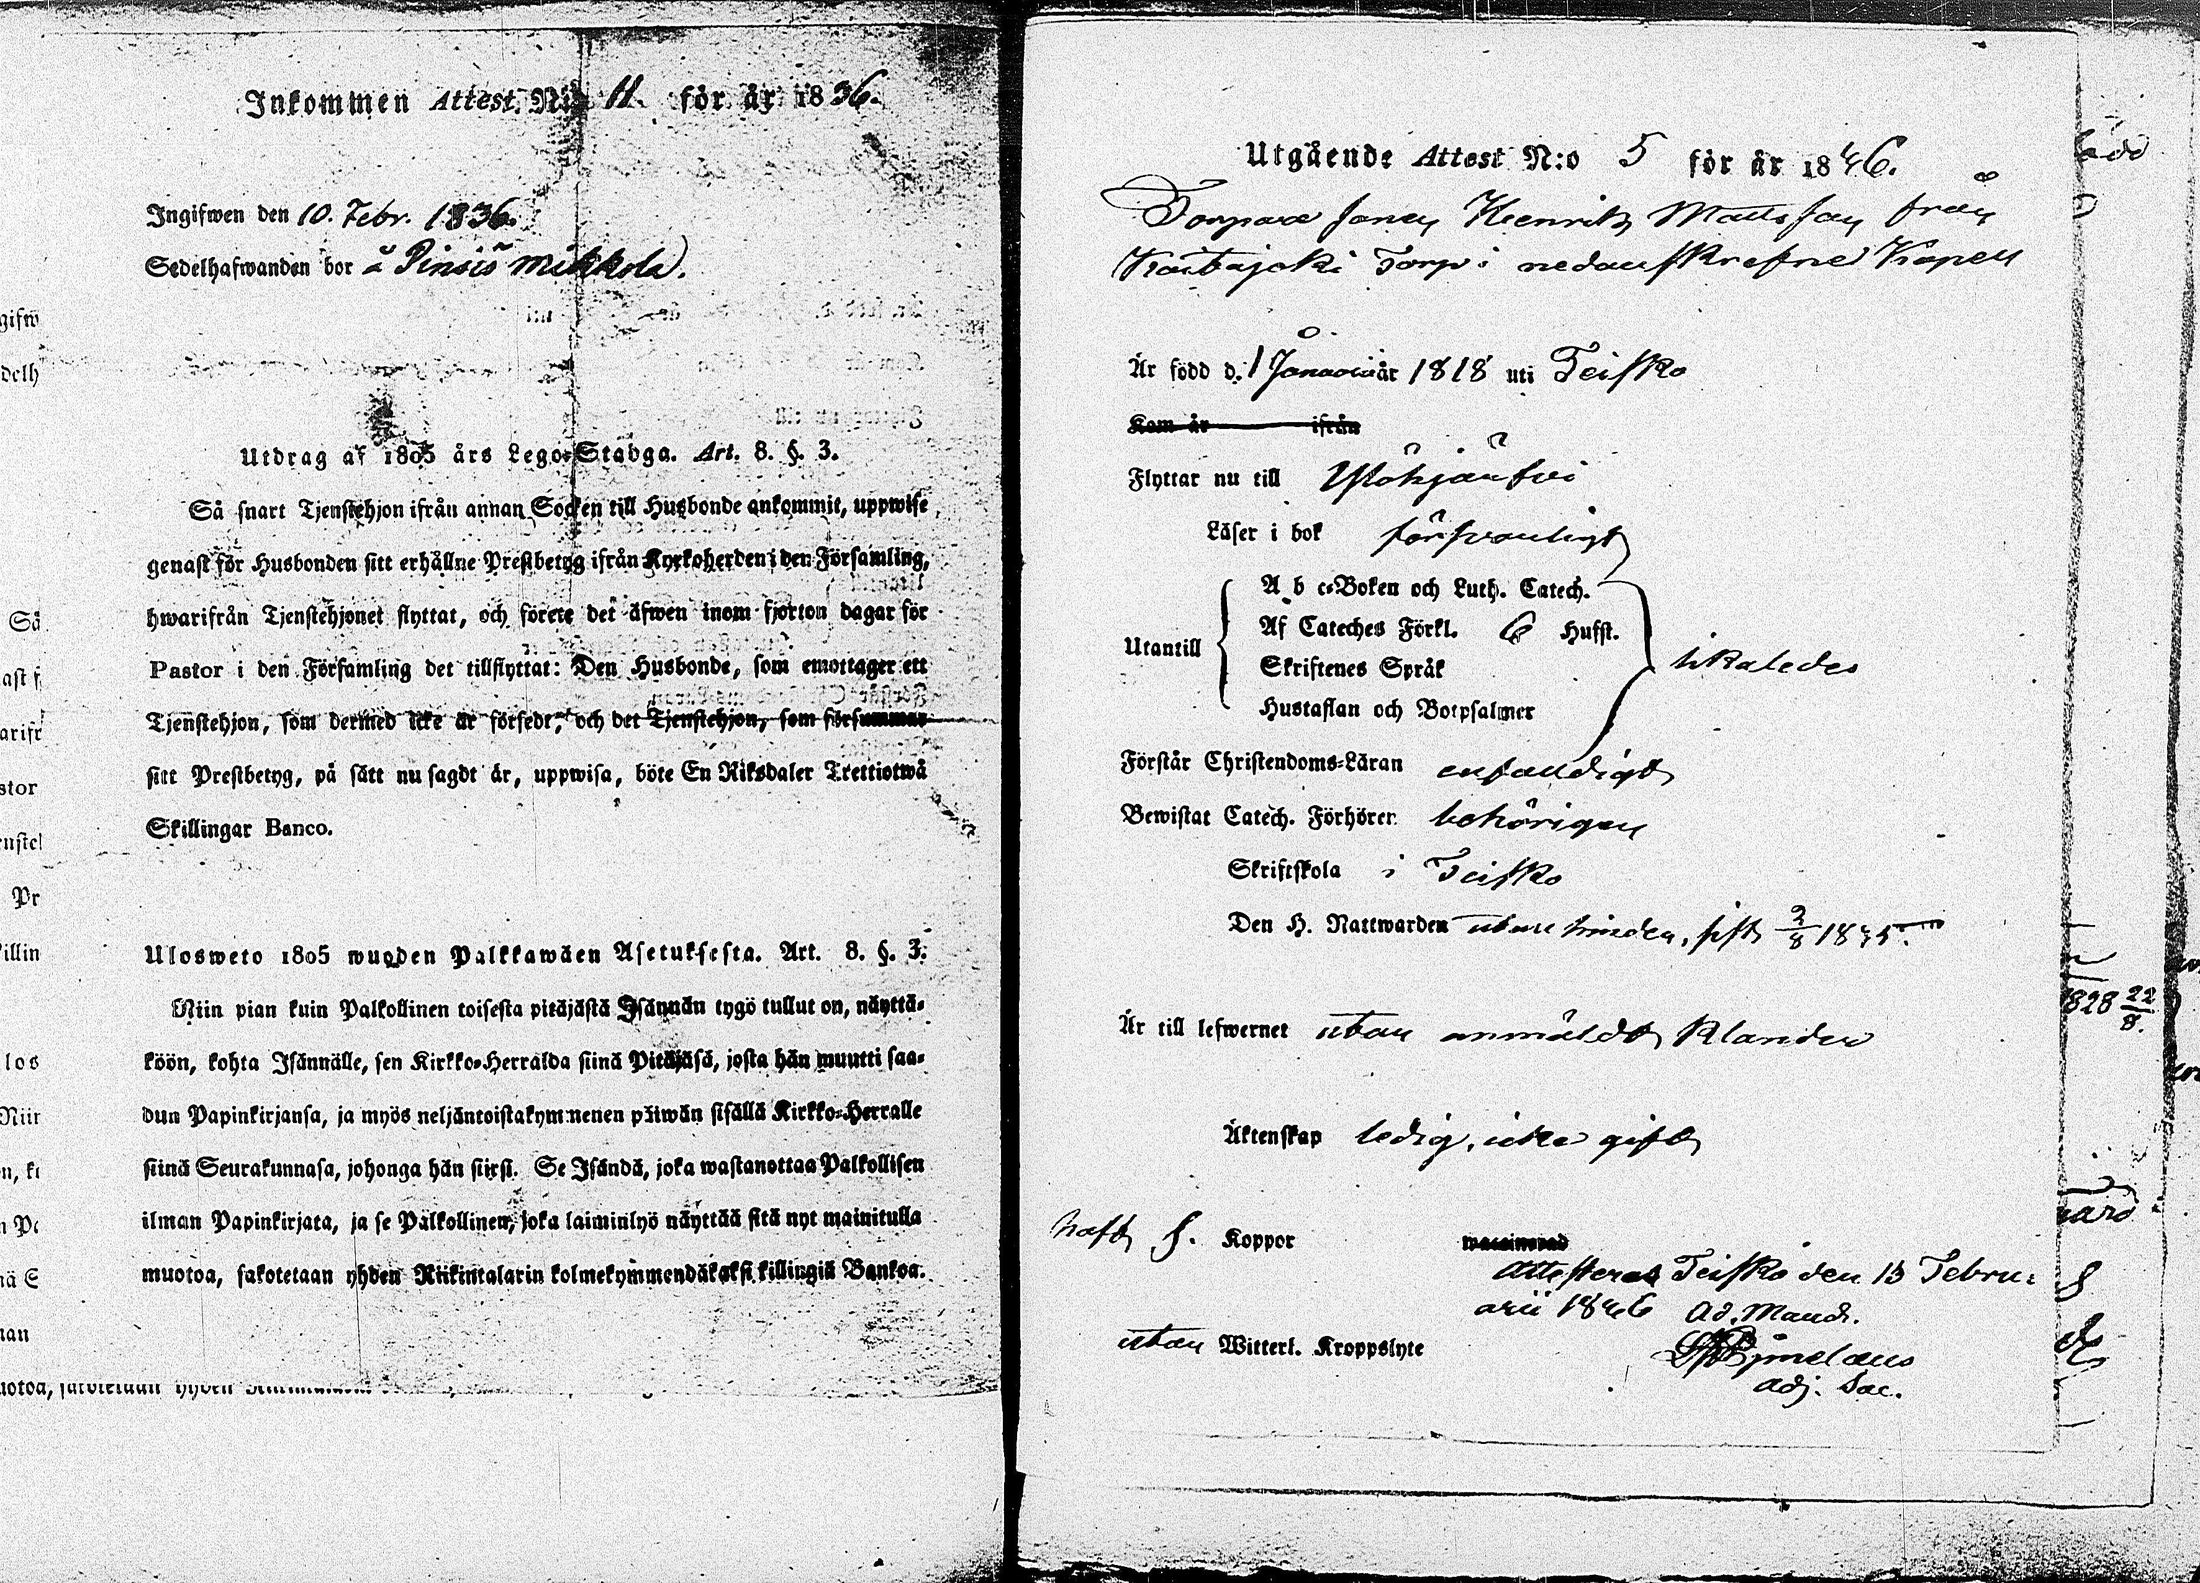 Inkommen Attest. N:o 11. för år 1836.
Ingifwen den 10. Febr. 1836.
Sedelhafwanden bor å Pinsiö Mikkola.
Utdrag af 1805 års Lego-Stadga. Art. 8. §. 3.
Så snart Tjenstehjon ifrån annan Socken till Husbonde ankommit, uppwise
genast för Husbonden sitt erhållne Prestbetyg ifrån Kyrkoherden i den Församling,
hwarifrån Tjenstehjonet flyttat, och förete det äfwen inom fjorton dagar för
Pastor i den Församling det tillflyttat: Den Husbonde, som emottager ett
Tjenstehjon, som dermed icke är försedt, och det Tjenstehjon, som försummar
sitt Prestbetyg, på sätt nu sagdt är, uppwisa, böte En Riksdaler Trettiotwå
Skillingar Banco.
Ulosweto 1805 wuoden Palkkawäen Asetuksesta. Art. 8. §. 3.
Niin pian kuin Palkollinen toisesta pitäjästä Isännän tygö tullut on, näyttä-
köön, kohta Isännälle, sen Kirkko-Herralda siinä Pitäjäsä, josta hän muutti saa-
dun Papinkirjansa, ja myös neljäntoistakymmenen päiwän sisällä Kirkko-Herralle
siinä Seurakunnasa, johonga hän siirsi. Se Isändä, joka wastanottaa Palkollisen
ilman Papinkirjata, ja se Palkollinen, joka laiminlyö näyttää sitä nyt mainitulla
muotoa, sakotetaan yhden Riikintalarin kolmekymmendäkaksi killingiä Bankoa.
Utgående Attest N:o 5 för år 1846.
Torpare Sonen Henrik Mattsson från
Torp i nedanskrefne Kapell
Är född d. 1 Januarii år 1818 uti Teisko
Kom år ifrån
Flyttar nu till Ylöhjärfvi
Läser i bok försvarligt
A b c-Boken och Luth. Catech.
Af Cateches Förkl. 6 Hufst.
Utantill
Skriftenes Språk
likaledes
Hustaflan och Botpsalmer
Förstår Christendoms-Läran enfaldigt
Bewistat Catech. Förhörer behörigen
Skriftskola i Teisko
Den H. Nattwarden utan hinder, sist
Är till lefwernet utan anmäldt klander
Äktenskap ledig, icke gift
haft Koppor
Attesteras Teisko den 13 Febru-
arii 1846 Ad. Mand.
utan Witterl. Kroppslyte
Adj. Sac.
1828 22/8.